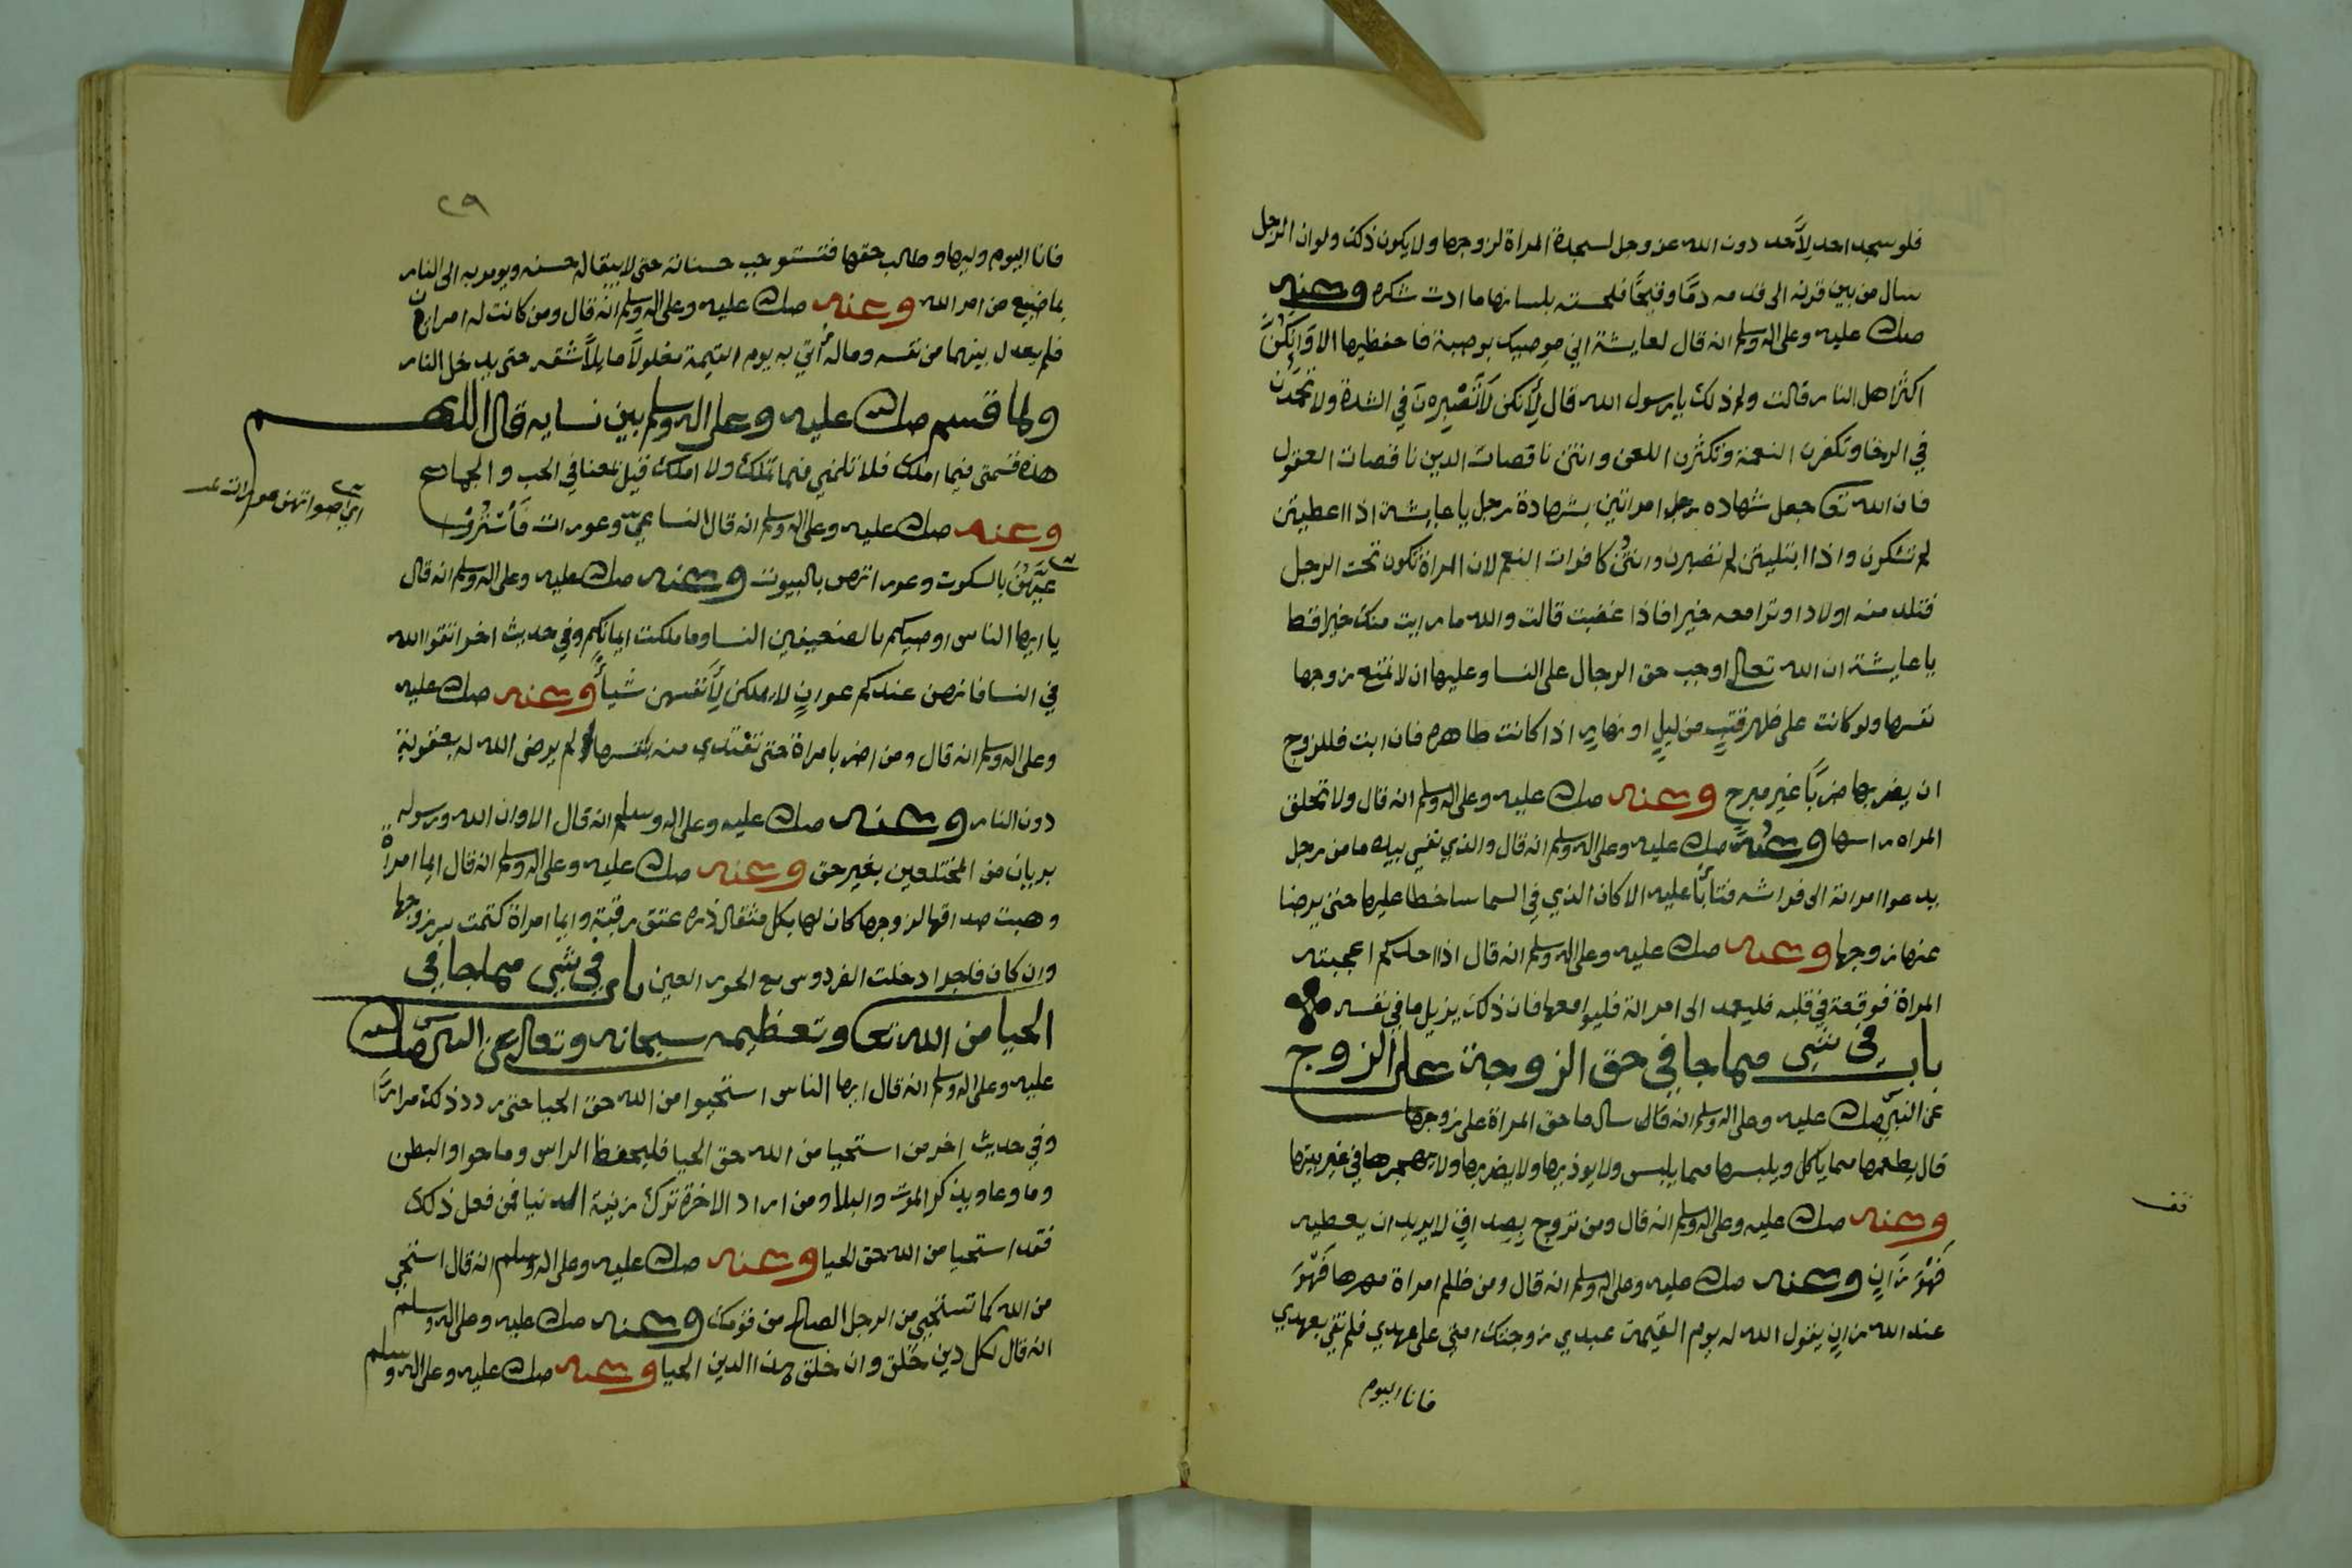 فلو سجد احد لأحد دون الله عز وجل لسجدة المراة لزوجها ولا يكون ذلك ولو ان الرجل
سال من بين قرنه الى قدمه دمًا وقيحًا فلحسته بلسانها ما ادت شكره وعنه
صلى الله عليه وعلى اله وسلم انه قال لعايشة اني موصيك بوصية فاحفظيها الا وانكن
اكثر اهل النار قالت ولم ذلك يا رسول الله قال لأنكن لا تصبرن في الشدة ولا تحمدن
في الرخا وتكفرن النعمة وتكثرن اللعن وانتن ناقصات الدين ناقصات العقول
فان الله تعا جعل شهاده امراتين بشهادة رجل يا عايشة اذا اعطيتن
لم تشكرن واذا ابتليتن لم تصبرن وانتن كافرات النعم لان المراة تكون تحت الرجل
فتلد منه اولادا وترا معه خيرا فاذا غضبت قالت والله ما رايت منك خيرا قط
يا عايشة ان الله تعالى اوجب حق الرجال على النسا وعليها ان لا تمنع زوجها
نفسها ولو كانت على ظهر قتبٍ من ليلٍ او نهارٍ اذا كانت طاهره فان ابت فللزوج
ان يضربها ضربًا غير مبرح وعنه صلى الله عليه وعلى اله وسلم انه قال ولا تحلق
المراه راسها وعنه صلى الله عليه وعلى اله وسلم انه قال والذي نفسي بيده ما من رجل
يدعوا امراته الى فراشه فتابا عليه الا كان الذي في السما ساخطا عليها حتى يرضا
عنها زوجها وعنه صلى الله عليه وعلى اله وسلم انه قال اذا احدكم اعجبته
المراة فوقعة في قلبه فليعمد الى امراته فليواقعها فان ذلك يزيل ما في نفسه
باب في شيى مما جا في حق الزوجة على الزوج
عن النبي صلى الله عليه وعلى اله وسلم انه قال سال ما حق المراة على زوجها
قال يطعمها مما ياكل ويلبسها مما يلبس ولا يوذيها ولا يضربها ولا يهجرها في غير بيتها
وعنه صلى الله عليه وعلى اله وسلم انه قال ومن تزوج بصداقٍ لا يريد ان يعطيه
فهو زانٍ وعنه صلى الله عليه وعلى اله وسلم انه قال ومن ظلم امراة مهرها فهو
عند الله زانٍ يقول الله له يوم القيمة عبدي زوجتك امتي على عهدي فلم تفي بعهدي
فانا اليوم
قف
٢٩
فانا اليوم وليها وطالب حقها فتستوجب حسناته حتى لا يبقا له حسنه ويومر به الى النار
بما ضيع من امر الله وعنه صلى الله عليه وعلى اله وسلم انه قال ومن كانت له امراتان
فلم يعدل بينهما من نفسه وماله أتي به يوم القيمة مغلولاً مايلاً شقه حتى يدخل النار
ولما قسم صلى الله عليه وعلى اله وسلم بين نسايه قال اللهم
هذه قسمتي فيما املك فلا تلمني فيما تملك ولا املك قيل معنا في الحب والجماع
وعنه صلى الله عليه وعلى اله وسلم انه قال النسا عيّ وعورات فأستروا
عيهن بالسكوت وعوراتهن بالبيوت وعنه صلى الله عليه وعلى اله وسلم انه قال
يا ايها الناس اوصيكم بالضعيفين النسا وما ملكت ايمانكم وفي حديث اخر اتقوا الله
في النسا فانهن عندكم عوانٍ لا يملكن لأنفسهن شيأً وعنه صلى الله عليه
وعلى اله وسلم انه قال ومن اضر بامراة حتى تفتدي منه بنفسها لم يرضى الله له بعقوبة
دون النار وعنه صلى الله عليه وعلى اله وسلم انه قال الا وان الله ورسوله
بريان من المختلعين بغير حق وعنه صلى الله عليه وعلى اله وسلم انه قال ايما امراة
وهبت صداقها لزوجها كان لها بكل مثقال ذره عتق رقبة وايما امراة كتمت سر زوجها
وان كان فاجرا دخلت الفردوس مع الحور العين باب في شيى مما جا في
الحيا من الله تعا وتعظيمه سبحانه وتعالى عن النبي صلى الله
عليه وعلى اله وسلم انه قال ايها الناس استحيوا من الله حق الحيا حتى ردد ذلك مرارًا
وفي حديث اخر من استحيا من الله حق الحيا فليحفظ الراس وما حوا والبطن
وما وعا ويذكر الموت والبلا ومن اراد الاخرة ترك زينة الدنيا فمن فعل ذلك
فقد استحيا من الله حق الحيا وعنه صلى الله عليه وعلى اله وسلم انه قال استحي
من الله كما تستحيي من الرجل الصالح من قومك وعنه صلى الله عليه وعلى اله وسلم
انه قال لكل دين خلق وان خلق هذا الدين الحيا وعنه صلى الله عليه وعلى اله وسلم
اي اصواتهن عورات